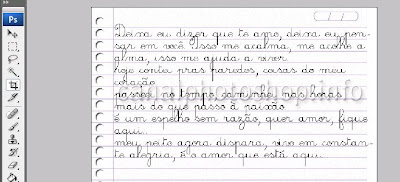 Ps
Deixa eu dizer que te amo, deixa eu pen-
sar em você. Isso me acalma, me acolhe a
alma, isso me ajuda a viver
hoje contei pras paredes, coisas do meu
coração
passei no tempo, caminhei nas horas
mais do que passo à paixão
é um espelho sem razão, quer amor, fique
aqui.
meu peito agora dispara, vivo em constan-
te alegria, é o amor que está aqui.